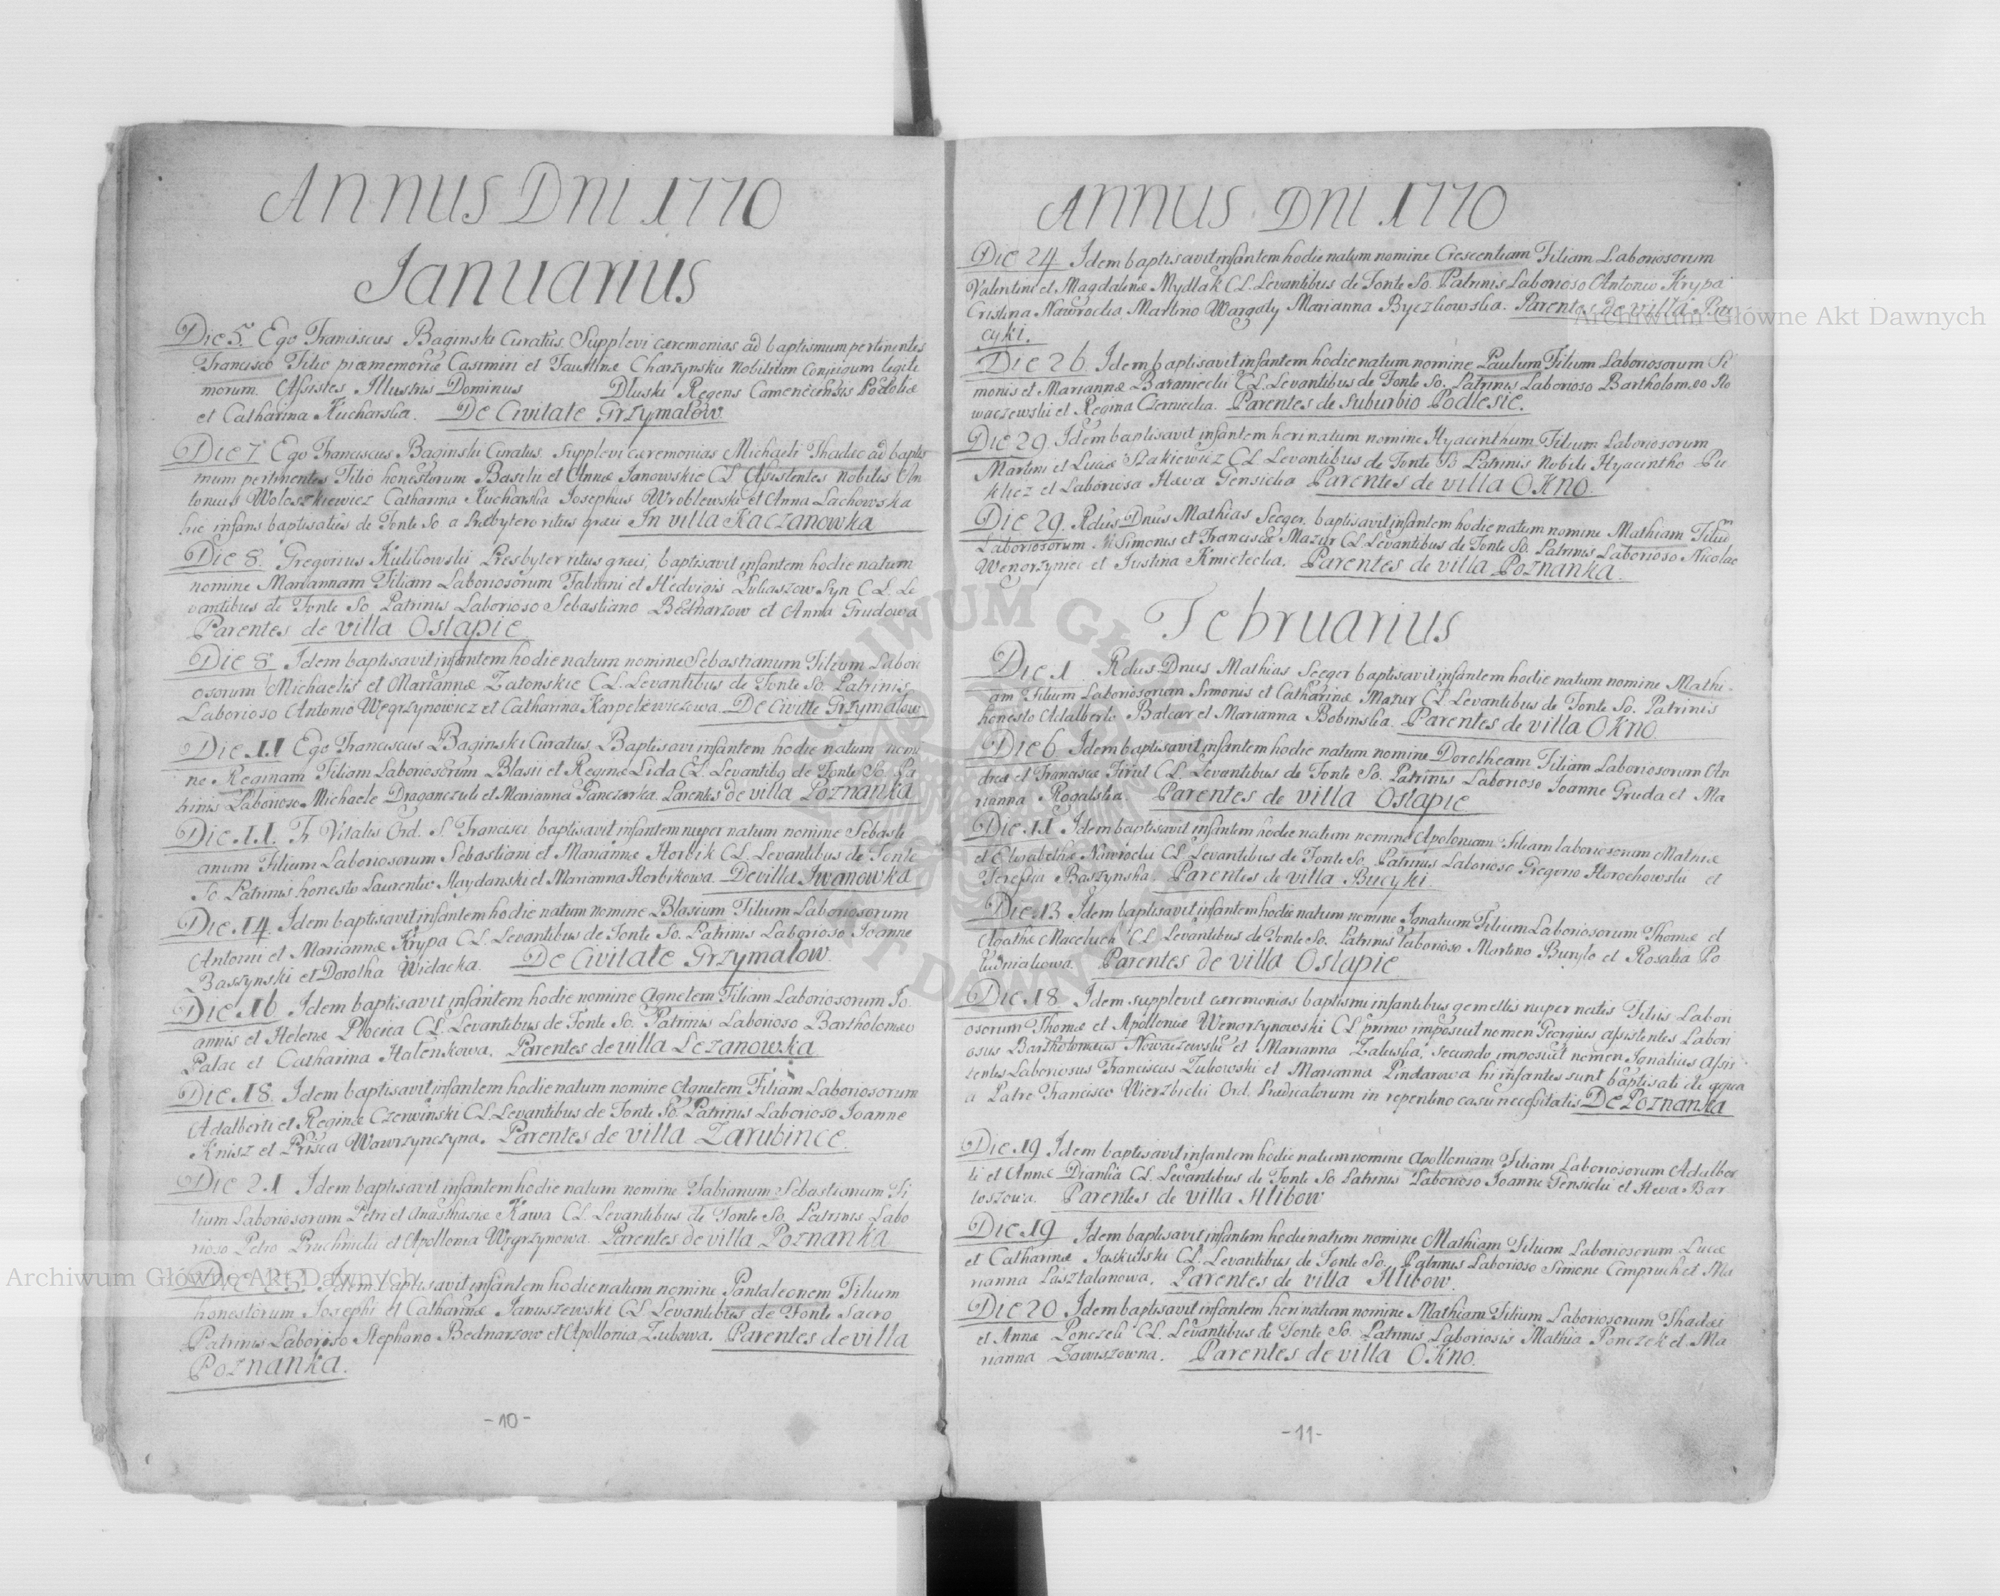 ANNUS DNI 1770
Januarius
Die 5 Ego Franciscus Baginski Curatus, Supplevi cæremonias ad baptismum pertinentes
Francisco Filio piæ memoriæ Casimiri et Faustinæ Charzynskie Nobilium Conjugum legiti
morum. Assistes Illustris Dominus Dluski Regens Camenecensis Podoliæ
et Catharina Kucharska. De Civitate Grzymałow
Die 7 Ego Franciscus Baginski Curatus. Supplevi cæremonias Michaeli Thadeo ad baptis
mum pertinentes Filio honestorum Basilii et Annæ Janowskie CL Assistentes Nobilis An
tonius Woloszkiewicz Catharina Kucharska Josephus Wroblewski et Anna Lachowska
hic infans baptisatus de Fonte So a Presbytero ritus græci In villa Kaczanowka
Die 8. Gregorius Kulikowski Presbyter ritus græci, baptisavit infantem hodie natum
nomine Mariannam Filiam Laboriosorum Fabiani et Hedvigis Lukaszow Syn CL. Le
vantibus de Fonte So Patrinis Laborioso Sebastiano Bednarzow et Anna Grudowa
Parentes de villa Ostapie
Die 8 Idem baptisavit infantem hodie natum nomine Sebastianum Filium Labori
osorum Michaelis et Mariannæ Zatonskie CL. Levantibus de Fonte So. Patrinis
Laborioso Antonio Węgrzynowicz et Catharina Karpetewiczowa. De Civitte Grzymałow
Die 11 Ego Franciscus Baginski Curatus Baptisavi infantem hodie natum nomi
ne Reginam Filiam Laboriosorum Blasii et Reginæ Lida CL. Levantibq de Fonte So. Pa
trinis Laborioso Michaele Draganczuk et Marianna Panczarka. Parentes de villa Poznanka
Die 11. Fr Vitalis Ord. S. Francisci baptisavit infantem nuper natum nomine Sebasti
anum Filium Laboriosorum Sebastiani et Mariannæ Horbik CL. Levantibus de Fonte
So Patrinis honesto Laurentio Maydanski et Marianna Horbikowa. De villa Iwanowka
Die 14. Idem baptisavit infantem hodie natum nomine Blasium Filium Laboriosorum
Antonii et Mariannæ Krypa CL. Levantibus de Fonte So. Patrinis Laborioso Joanne
Baszynski et Dorotha Widacka. De Civitate Grzymałow.
Die 16 Idem baptisavit infantem hodie nomine Agnetem Filiam Laboriosorum Jo
annis et Helenæ Plocica CL. Levantibus de Fonte So. Patrinis Laborioso Bartholomæo
Palac et Catharina Hatenkowa. Parentes de villa Lezanowka
Die 18. Idem baptisavit infantem hodie natum nomine Agnetem Filiam Laboriosorum
Adalberti et Reginæ Czerwinski CL Levantibus de Fonte So. Patrinis Laborioso Joanne
Knisz et Prisca Wawrzynczyna. Parentes de villa Zarubince.
Die 21 Idem baptisavit infantem hodie natum nomine Fabianum Sebastianum Fi
lium Laboriosorum Petri et Anastasiæ Kawa CL. Levantibus de Fonte So. Patrinis Labo
rioso Petro Pruchnicki et Apollonia Węgrzynowa. Parentes de villa Poznanka
Die 23. Idem baptisavit infantem hodie natum nomine Pantaleonem Filium
honestorum Josephi et Catharinæ Januszewski CL Levantibus de Fonte Sacro
Patrinis Laborioso Stephano Bednarzow et Apollonia Zubowa. Parentes de villa
Poznanka.
-10-
ANNUS DNI 1770
Die 24 Idem baptisavit infantem hodie natum nomine Crescentiam Filiam Laboriosorum
Valentini et Magdalenæ Mydlak CL. Levantibus de Fonte So. Patrinis Laborioso Antonio Krypa
Cristina Nawrocka Martino Wargaty Marianna Byczkowska. Parentes de villa Bu
cyki.
Die 26 Idem baptisavit infantem hodie natum nomine Paulum Filium Laboriosorum Si
monis et Mariannæ Baraniecki CL. Levantibus de Fonte So. Patrinis Laborioso Bartholomæo No
waczewski et Regina Czerniecka. Parentes de Suburbio Podlesie.
Die 29 Idem baptisavit infantem heri natum nomine Hyacinthum Filium Laboriosorum
Martini et Luciæ Stakiewicz CL Levantibus de Fonte So Patrinis Nobili Hyacintho Pu
khez et Laboriosa Hava Gensicka Parentes de villa Okno.
Die 29. Rdus Dnus Mathias Seeger, baptisavit infantem hodie natum nomine Mathiam Filiū
Laboriosorum Simonis et Franciscæ Mazur CL Levantibus de Fonte So. Patrinis Laborioso Nicolao
Wenorzyniec et Justina Kmietecka. Parentes de villa Poznanka.
Februarius
Die 1 Rdus Dnus Mathias Seeger baptisavit infantem hodie natum nomine Mathi-
am Filium Laboriosorum Simonis et Catharinæ Mazur CL Levantibus de Fonte So. Patrinis
honesto Adalberto Balcar et Marianna Bobinska. Parentes de villa Okno.
Die 6 Idem baptisavit infantem hodie natum nomine Dorotheam Filiam Laboriosorum An
dreæ et Franciscæ Firlit CL. Levantibus de Fonte So. Patrinis Laborioso Joanne Gruda et Ma
rianna Rogalska. Parentes de villa Ostapie
Die 11 Idem baptisavit infantem hodie natum nomine Apoloniam Filiam laboriosorum Mathiæ
et Elisabethæ Nawrocki CL Levantibus de Fonte So. Patrinis Laborioso Gregorio Horochowski et
Teresia Baszynska. Parentes de villa Bucyki.
Die 13 Idem baptisavit infantem hodie natum nomine Ignatium Filium Laboriosorum Thomæ et
Agathæ Maceluch CL Levantibus de Fonte So. Patrinis laborioso Martino Burylo et Rosalia Po
ludniakowa. Parentes de villa Ostapie
Die 18. Idem supplevit cæremonias baptismi infantibus gemellis nuper natis Filiis Labori
osorum Thomæ et Apolloniæ Wenorzynowski CL primo imposuit nomen Georgius assistentes Labori
osus Bartholomæus Nowaczewski et Marianna Zaluska, secundo imposuit nomen Ignatius Assis
tentes Laboriosus Franciscus Zubowski et Marianna Pindarowa hi infantes sunt baptisati de aqua
a Patre Francisco Wierzbicki Ord. Prædicatorum in repentino casu necessitatis De Poznanka
Die 19 Idem baptisavit infantem hodie natum nomine Apolloniam Filiam Laboriosorum Adalber
ti et Annæ Dranka CL. Levantibus de Fonte So Patrinis Laborioso Joanne Gensicki et Heva Bar
toszowa. Parentes de villa Hlibow
Die 19 Idem baptisavit infantem hodie natum nomine Mathiam Filium Laboriosorum Lucæ
et Catharinæ Jaskulski CL. Levantibus de Fonte So. Patrinis Laborioso Simone Compruch et Ma
rianna Pasztalanowa. Parentes de villa Hlibow.
Die 20 Idem baptisavit infantem heri natum nomine Mathiam Filium Laboriosorum Thadæi
et Annæ Ponczek CL. Levantibus de Fonte So. Patrinis Laboriosis Mathia Ponczek et Ma
rianna Zawiszowna. Parentes de villa Okno.
-11-
Archiwum Główne Akt Dawnych
Archiwum Główne Akt Dawnych